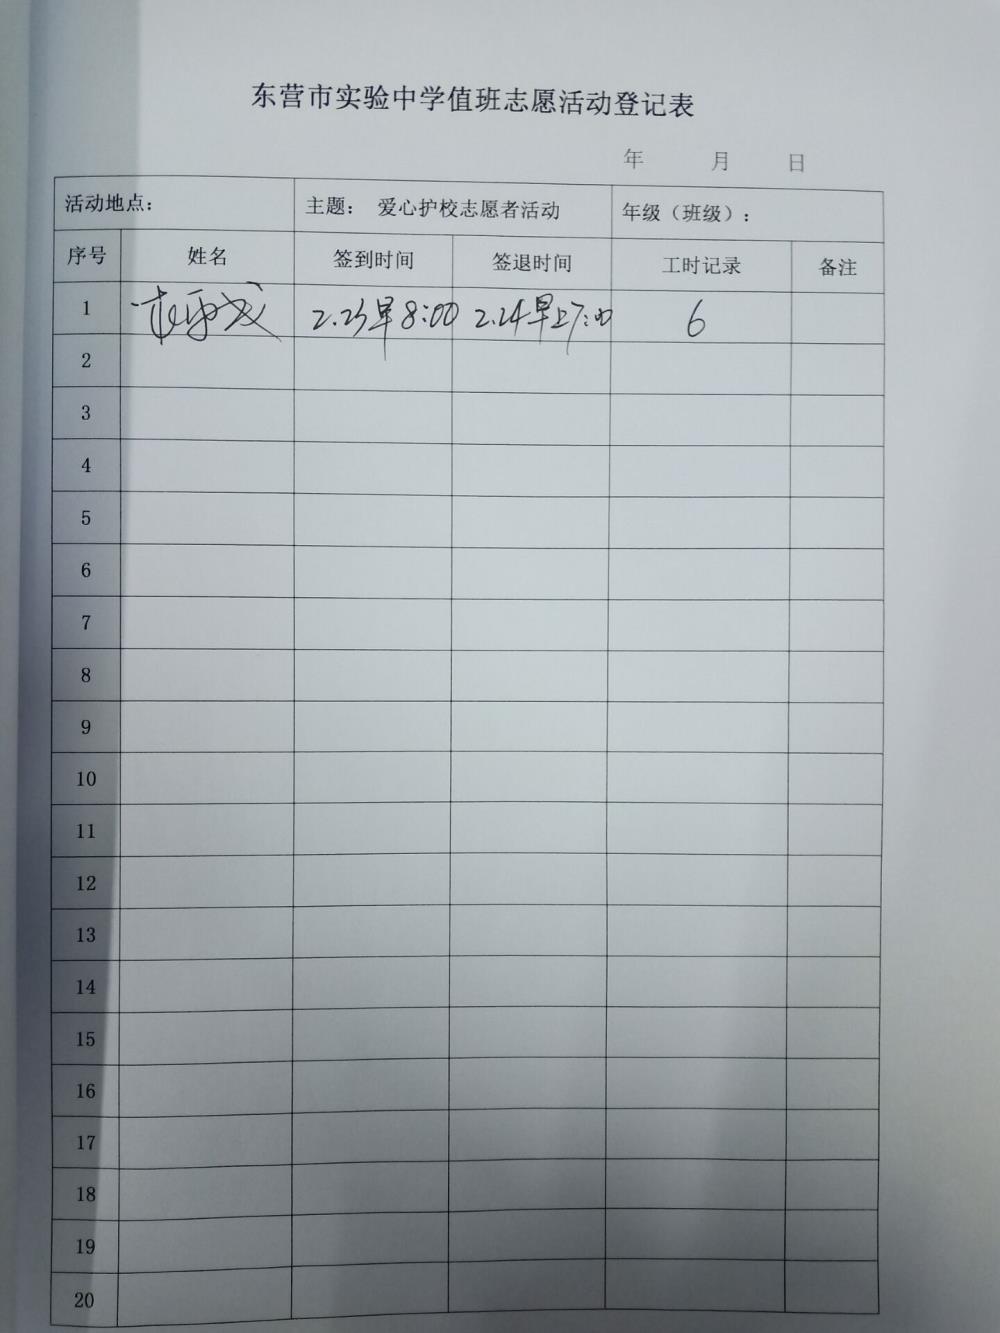 东营市实验中学值班志愿活动登记表
年 月 日
活动地点： 主题： 爱心护校志愿者活动 年级（班级）：
序号 姓名 签到时间 签退时间 工时记录 备注
1 2.23早8:00 2.24早上7:00 6
2
3
4
5
6
7
8
9
10
11
12
13
14
15
16
17
18
19
20